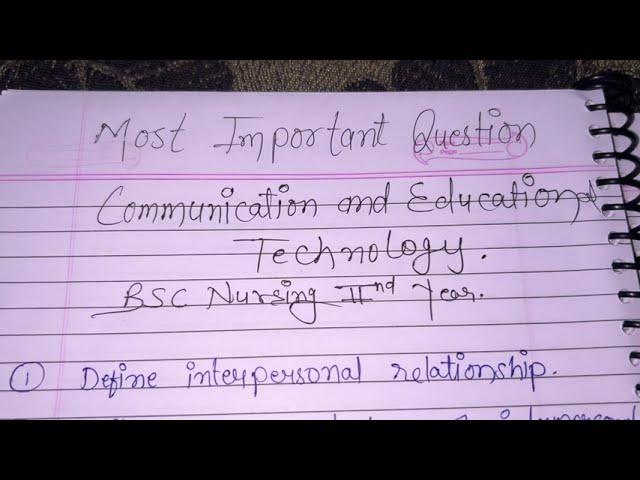 Most Important Question
Communication and Educational
Technology.
BSC Nursing IInd Year.
① Define interpersonal relationship.